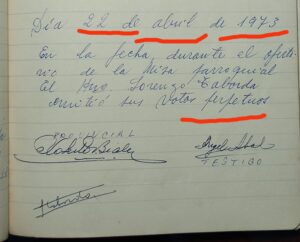 Día 22 de abril de 1973
En la fecha, durante el oferto-
rio de la Misa parroquial
El Hno. Lorenzo Taborda
emitió sus votos perpetuos
PROVINCIAL
TESTIGO